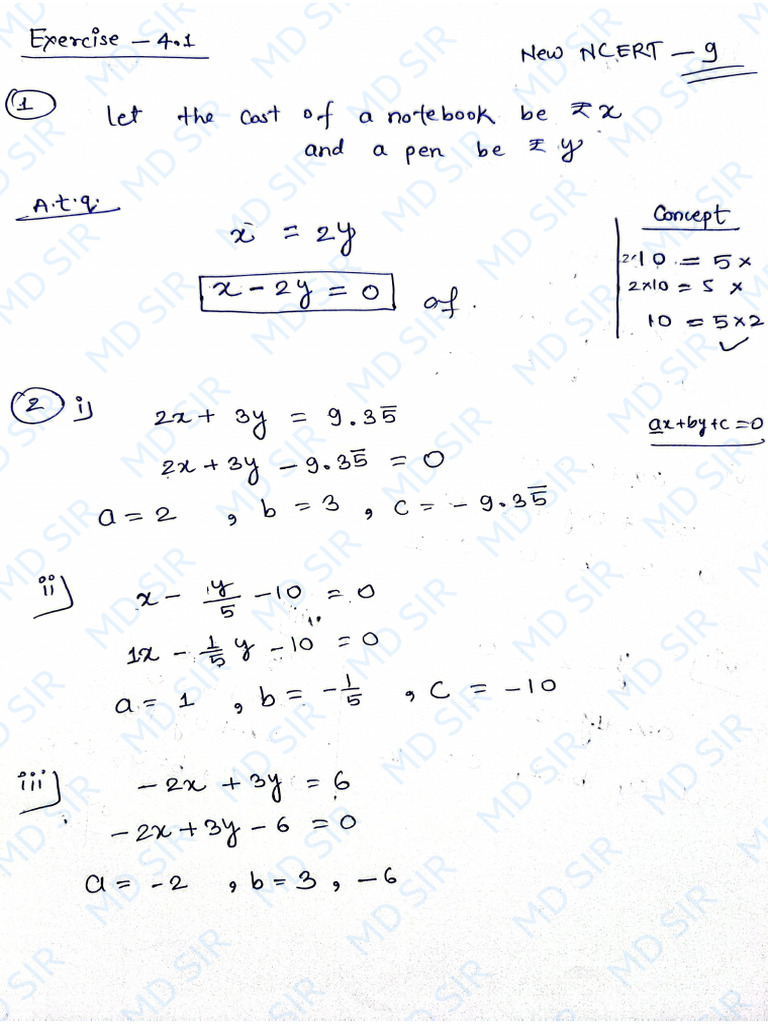 Exercise - 4.1
New NCERT - 9
① Let the cost of a notebook be ₹ x
and a pen be ₹ y
A.t.q.
x = 2y
x - 2y = 0 of.
Concept
2×10 = 5 ×
2×10 = 5 ×
10 = 5×2 ✓
② i) 2x + 3y = 9.35̅
2x + 3y - 9.35̅ = 0
a = 2 , b = 3 , c = - 9.35̅
ax+by+c=0
ii) x - y/5 - 10 = 0
1x - 1/5 y - 10 = 0
a = 1 , b = - 1/5 , c = -10
iii) -2x + 3y = 6
-2x + 3y - 6 = 0
a = -2 , b = 3 , -6
MD SIR